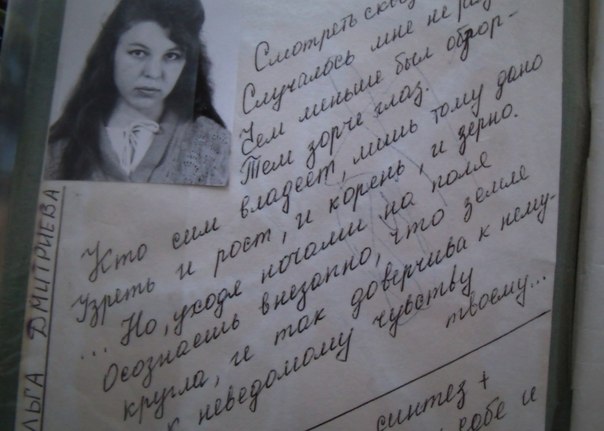 Смотреть
Случалось мне не раз
Чем меньше был обзор-
Тем зорче глаз.
Кто сим владеет, лишь тому дано
Узреть и рост, и корень, и зерно.
... Но, уходя ночами на поля
Осознаешь внезапно, что земле
кругла, и так доверчива к нему-
к неведомому чувству твоему...
синтез +
себе и
ЛЬГА ДМИТРИЕВА